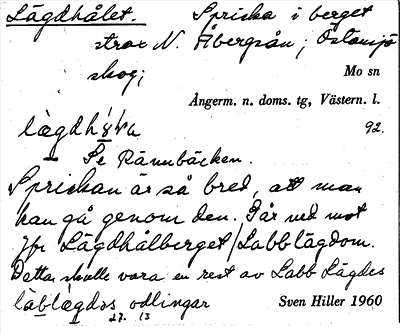 Lägdhålet. Spricka i berget
strax N. Åbergsån; Östansjö
skog; Mo sn
Ångerm. n. doms. tg, Västern. l.
92.
Se Rännbäcken.
Sprickan är så bred, att man
kan gå genom den. Går ned mot
Jfr Lägdhålberget/Labblägdorn.
Detta skulle vara en rest av Labb Lägdes
odlingar Sven Hiller 1960
27. 13